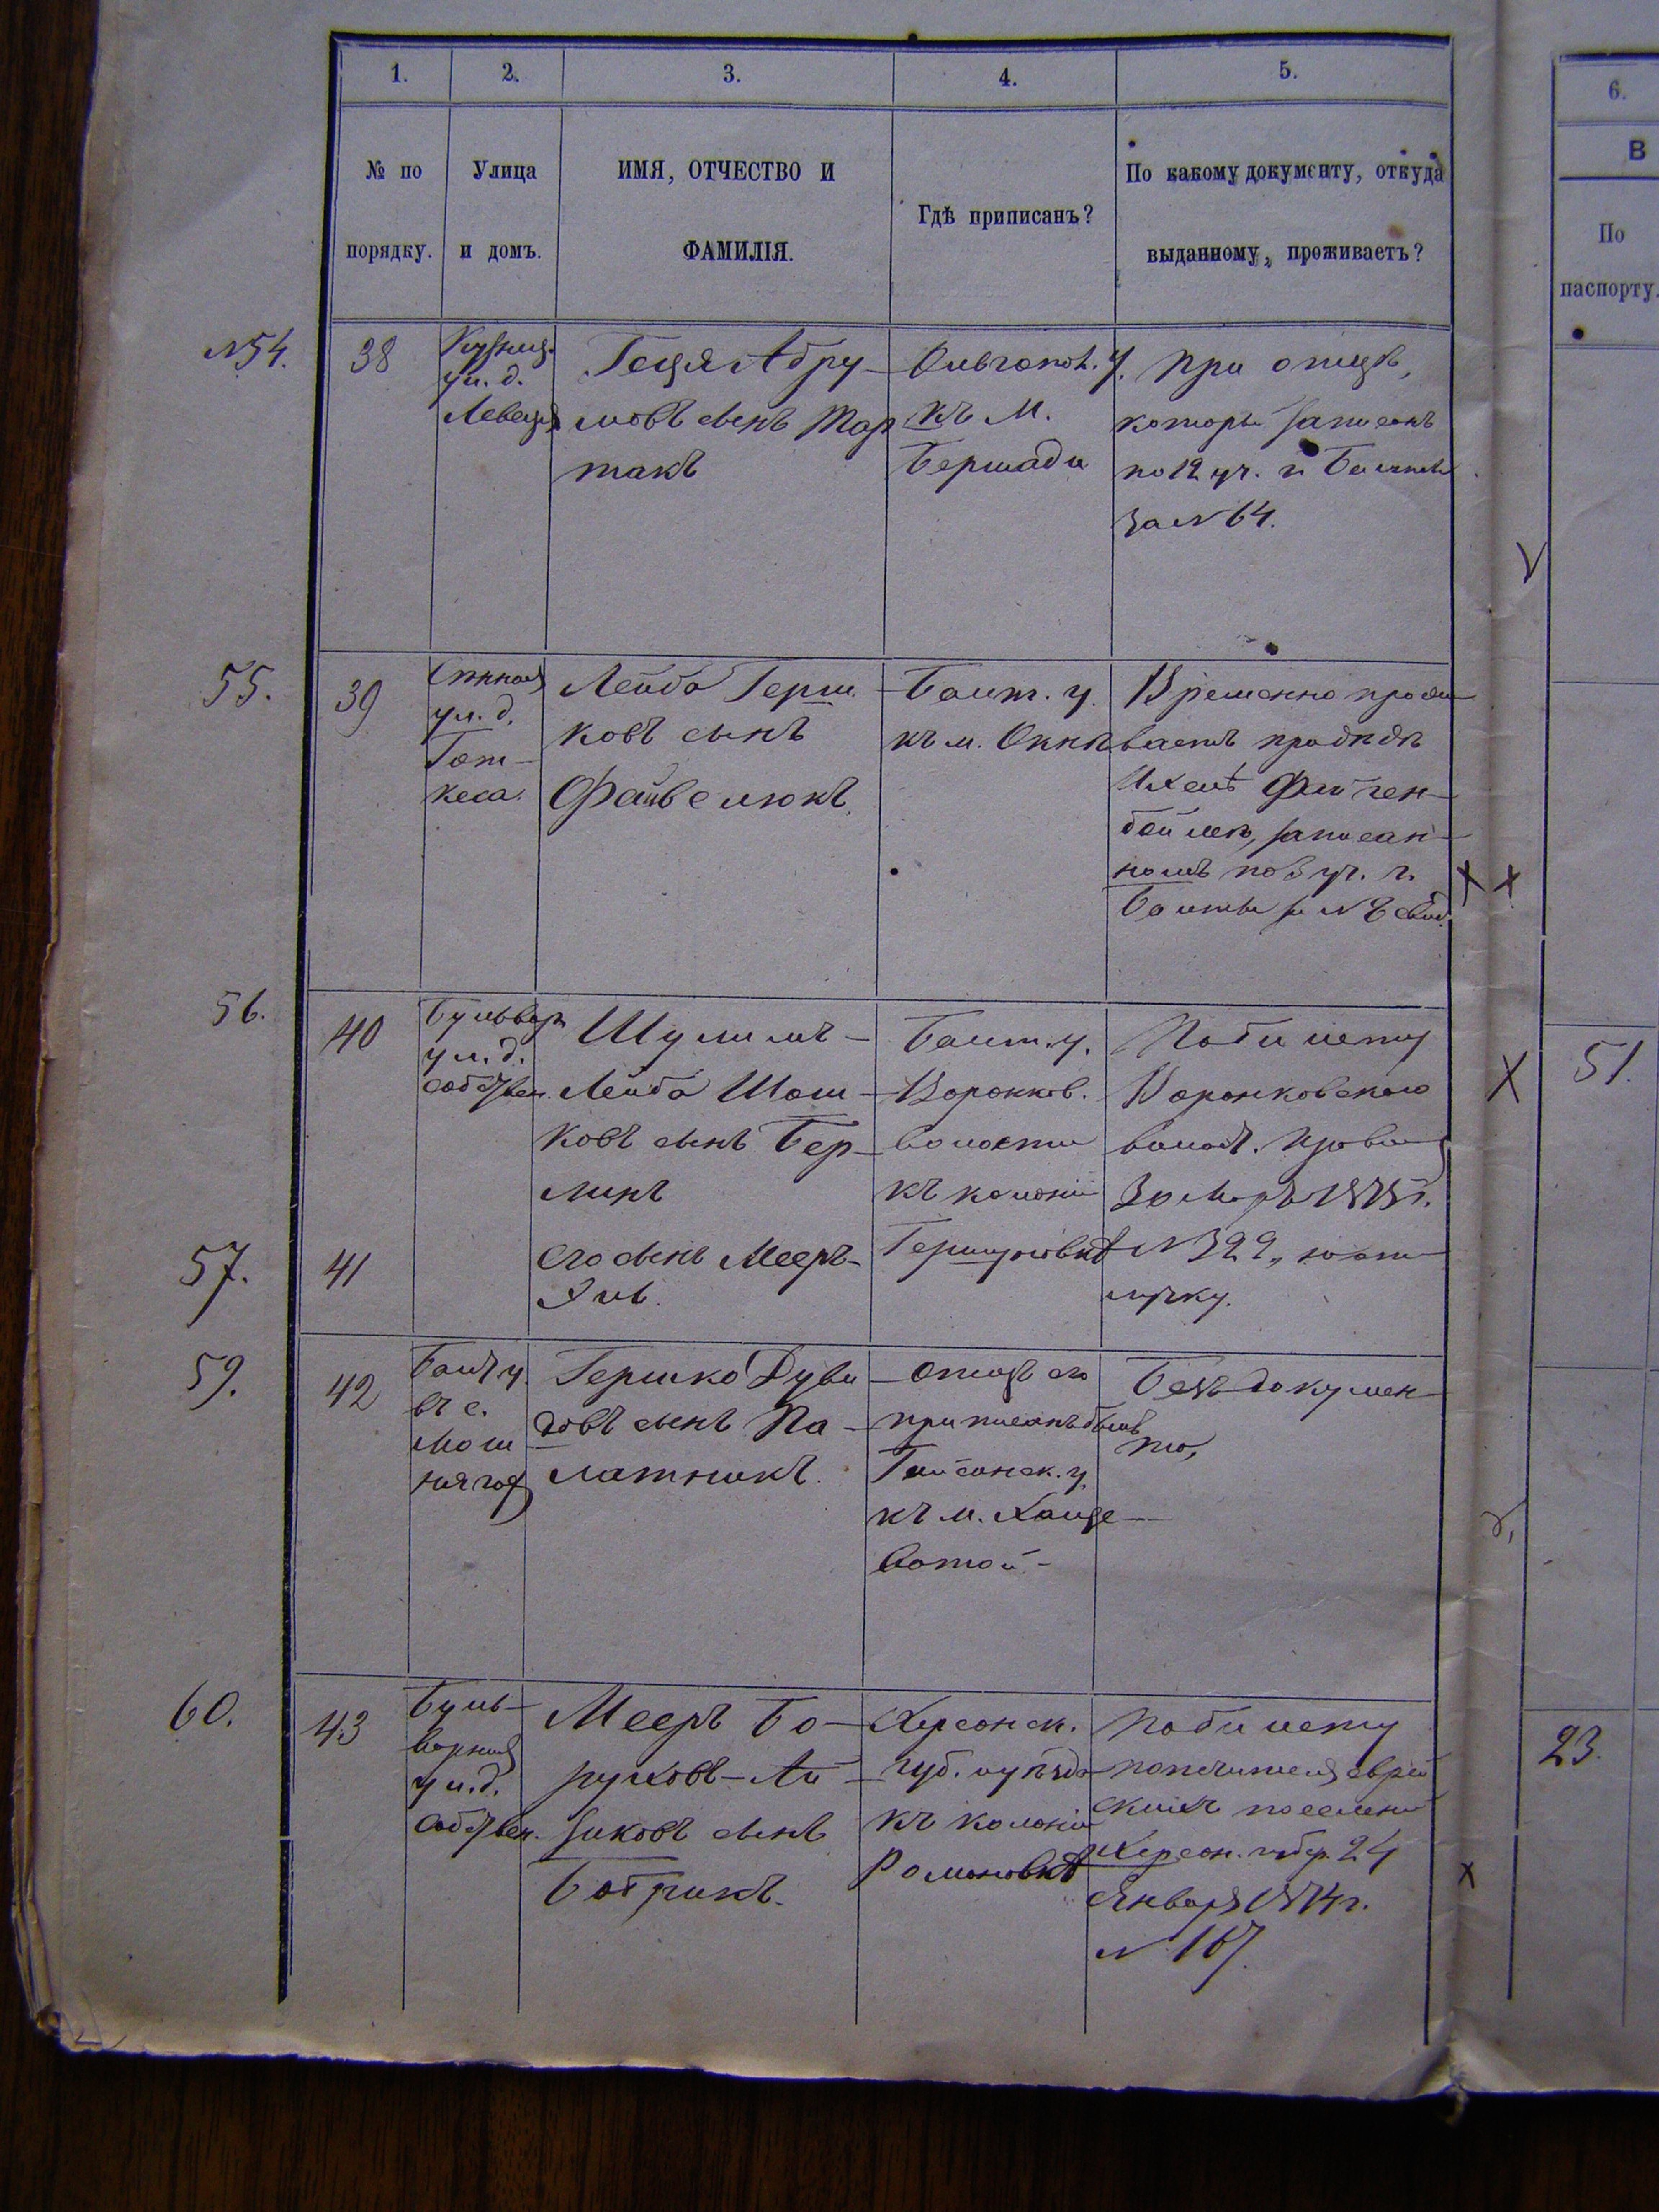 1.
2.
3.
4.
5.
6.
№ по
порядку.
Улица
и домъ.
ИМЯ, ОТЧЕСТВО И
ФАМИЛІЯ.
Гдѣ приписанъ?
По какому документу, откуда
выданному, проживаетъ?
В
По
паспорту.
№54.
38
Кузнеч.
ул. д.
Геця Абру-
мовъ сынъ Тар
такъ
Ольгопол. у.
къ м.
Бершади
При отцѣ,
который записанъ
по 12 уч. г. Балты
за № 64.
55.
39
Сѣнная
ул. д.
Гот-
кеса.
Лейба Герш-
ковъ сынъ
Файвелюкъ.
Балт. у.
къ м. Окнѣ
Временно прожи
ваетъ при дѣдѣ
записан-
номъ по 3 уч. г.
Балты
56.
40
Бульвар
ул. д.
собствен.
Шулимъ-
Лейба Шош-
ковъ сынъ Бер-
линъ
Балт. у.
Воронков.
волости
къ колоніи
Гершуновкѣ
По билету
Воронковскаго
волост. правл
30 1875 г.
№ 322,
57.
41
Его сынъ Мееръ-
Янъ.
59.
42
Балт у.
въ с.
Мош
нягоѣ
Гершко Дуви
довъ сынъ Па-
латникъ.
Отецъ его
приписанъ былъ
Гайсинск. у.
къ м. Хаще-
ватой-
Безъ докумен-
та,
60.
43
Буль-
варная
ул. д.
собствен.
Мееръ Бо-
руховъ-Ай-
зиковъ сынъ
Ботрикъ.
Херсонск.
губ. и уѣзда
къ колоніи
Романовкѣ
По билету
попечителя еврей
скихъ поселеній
Херсон. губер. 24
Января 1874 г.
№ 167.
51.
23.